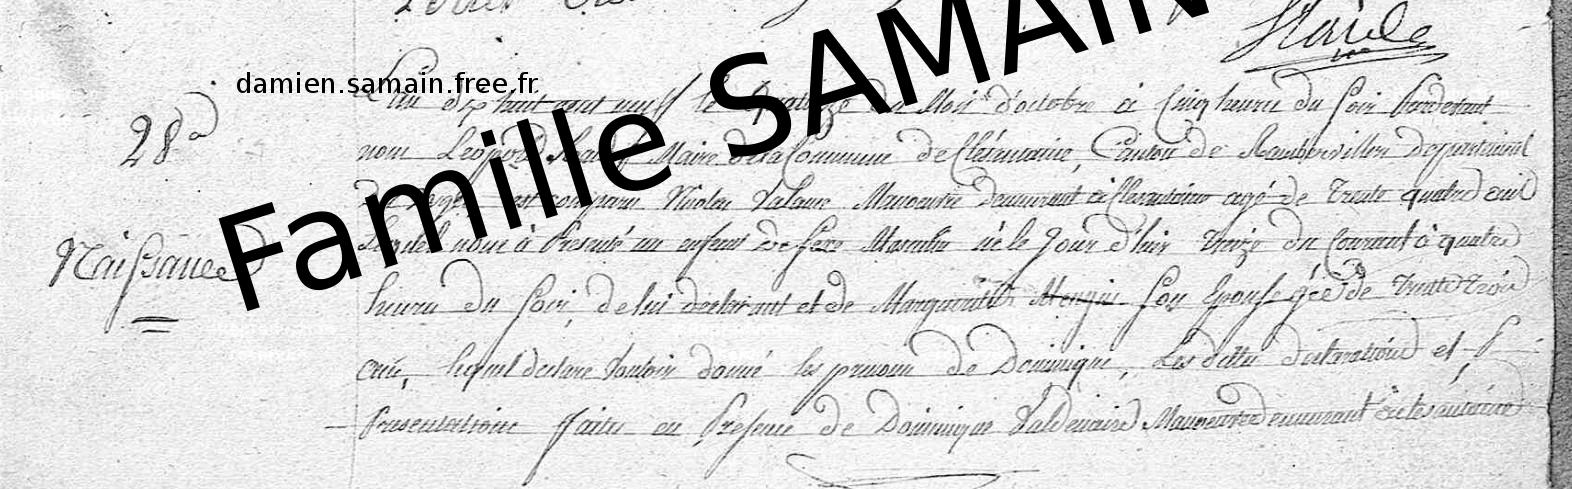 Famille SAMAIN
damien.samain.free.fr
28e
Naissance
L'an dix huit cent neuf le quatorze du Mois d'octobre à Cinq heures du soir Pardevant
nous Léopold Maire de la Commune de Clésentaine, Canton de Rambervillers Departement
est comparu Nicolas Manoeuvre Demeurant à Clesentaine agé de trente quatre
Lequel nous à Presenté un enfant de sexe Masculin né le Jour d'hier treize du Courant à quatre
heures du soir, de lui declarant et de Marguerite Mengin son Epouse agée de trente trois
lequel declare Vouloir donné les prenom de Dominique, Les dittes declarations et
Presentations faites en Presence de Dominique Valdenaire Manoeuvre demeurant à Clesentaine